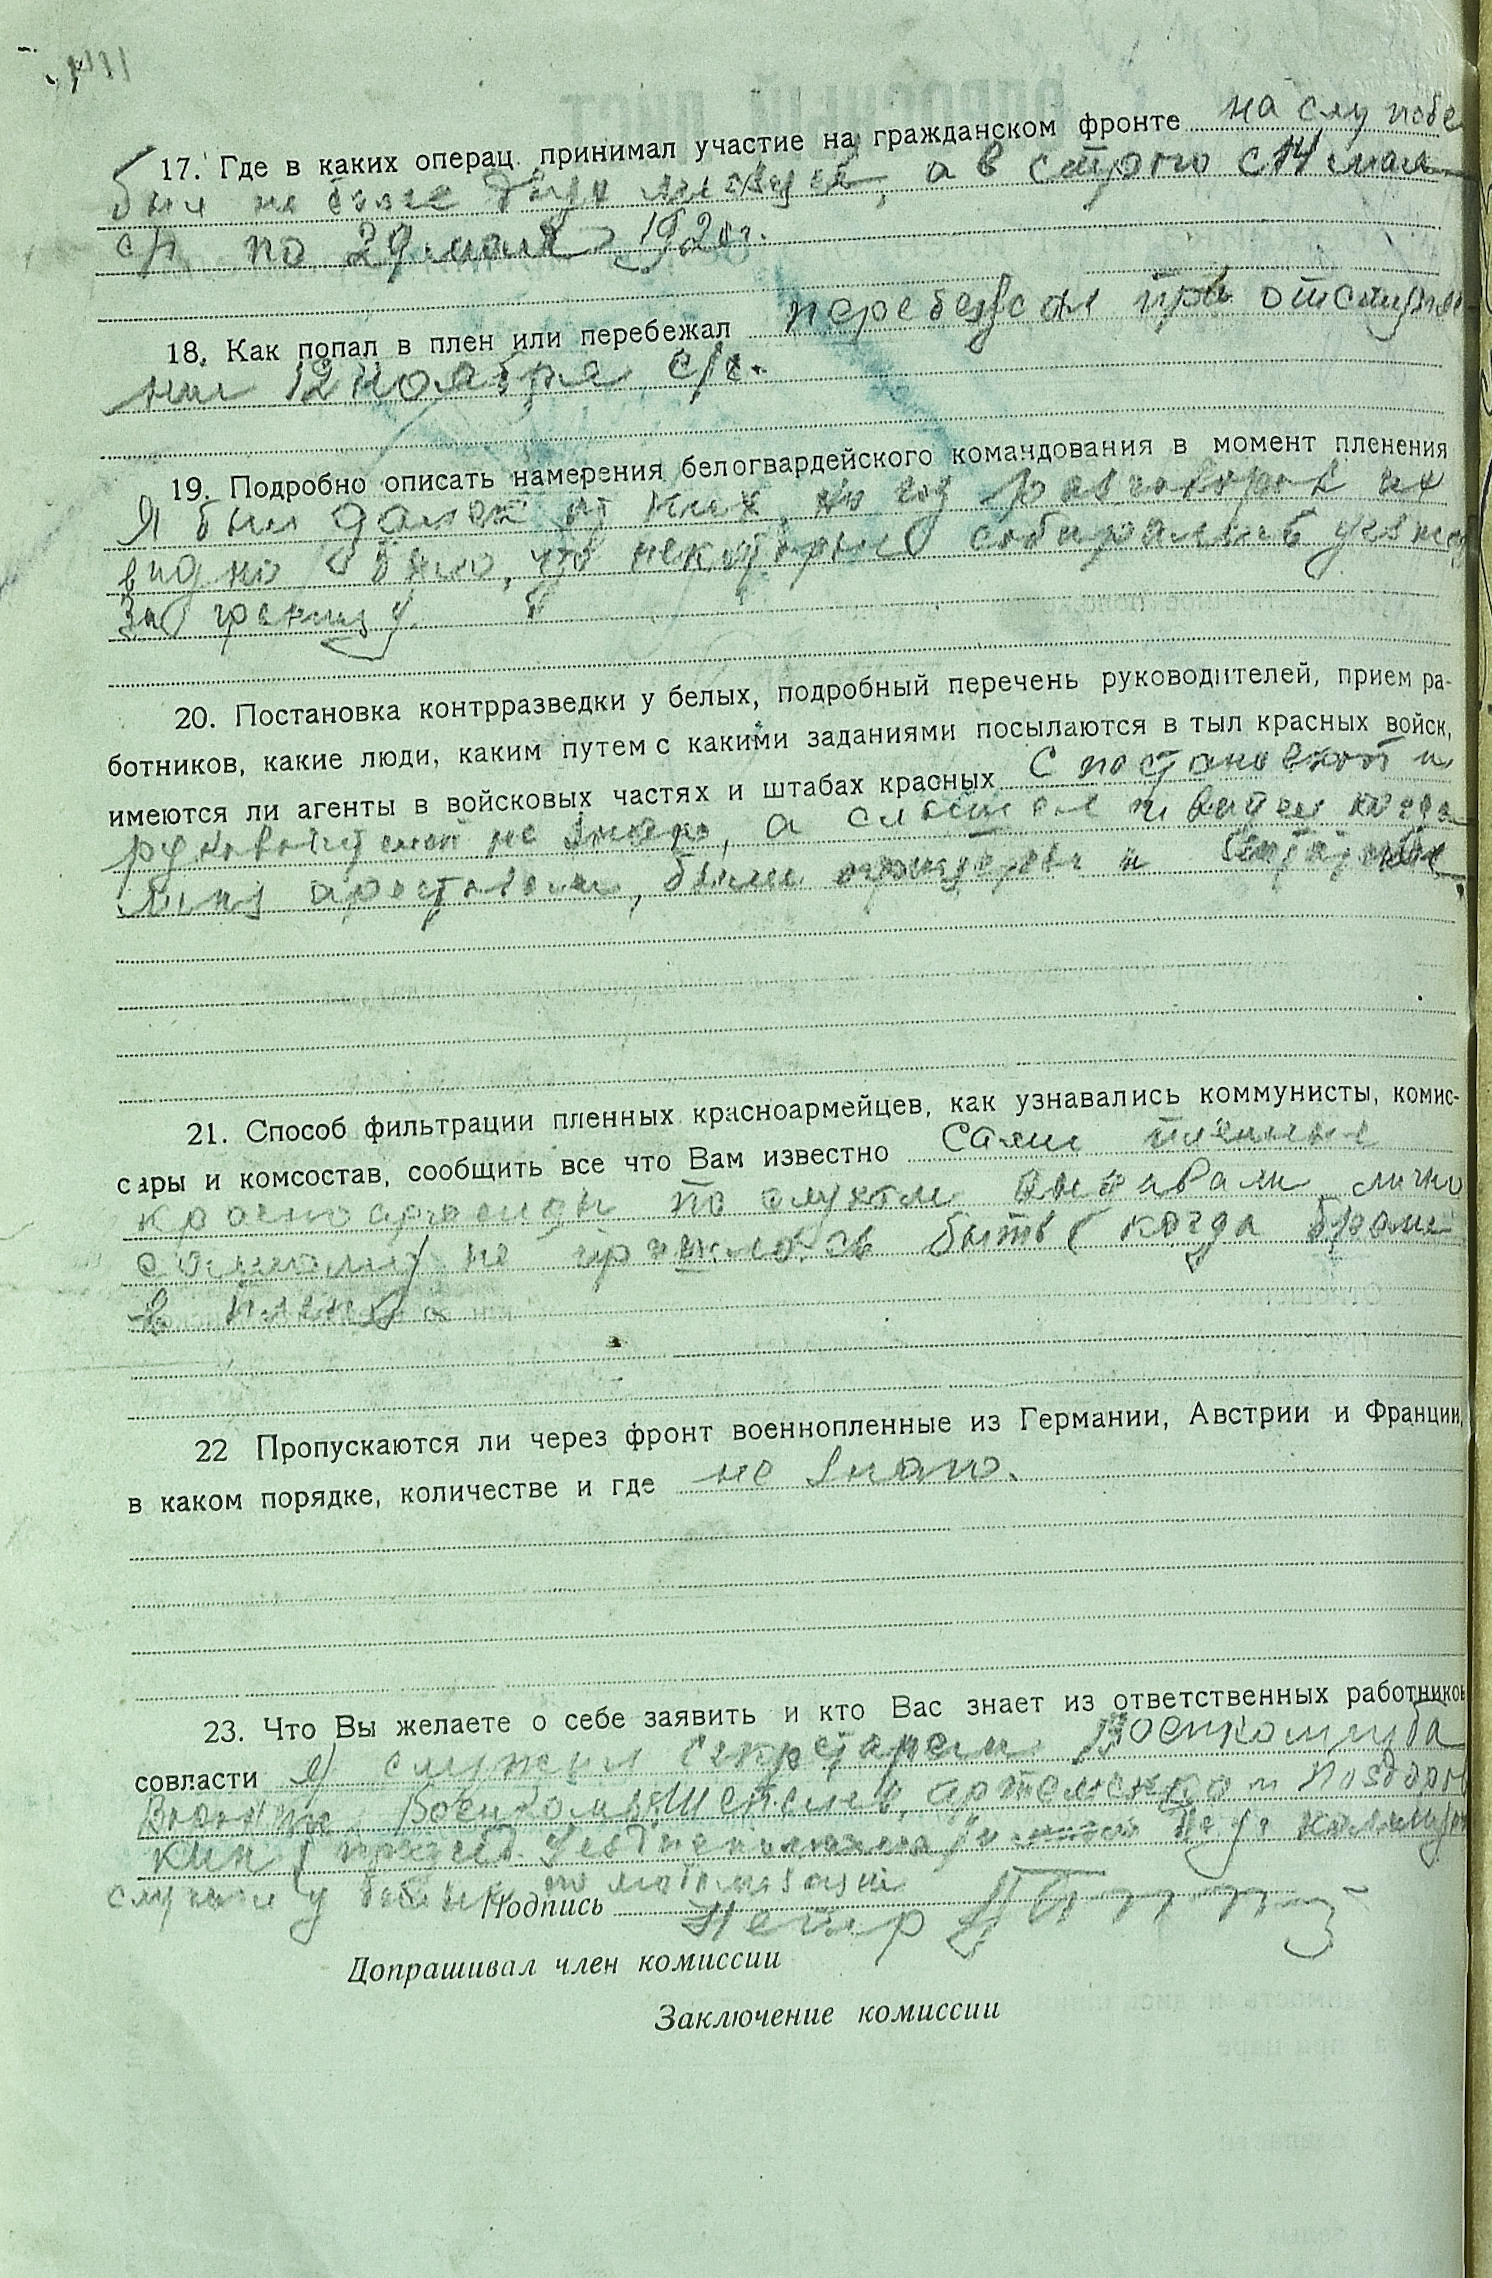 17. Где в каких операц. принимал участие на гражданском фронте на службе
был не более двух месяцев, а в строю с 14 мая
с/г по 29 мая 1920 г.
18. Как попал в плен или перебежал перебежал при отступле
нии 12 ноября с/г.
19. Подробно описать намерения белогвардейского командования в момент пленения
Я был далек от них, но из разговоров их
видно было, что некоторые собирались уезжать
за границу
20. Постановка контрразведки у белых, подробный перечень руководителей, прием ра-
ботников, какие люди, каким путем с какими заданиями посылаются в тыл красных войск,
имеются ли агенты в войсковых частях и штабах красных С постановкой и
не знаю, а слышал и видел когда
арестовали, были офицеры и
21. Способ фильтрации пленных красноармейцев, как узнавались коммунисты, комис-
сары и комсостав, сообщить все что Вам известно Сами пленные
красноармейцы по слухам выдавали лично
не пришлось быть когда брали
в плен
22 Пропускаются ли через фронт военнопленные из Германии, Австрии и Франции,
в каком порядке, количестве и где не знаю.
23. Что Вы желаете о себе заявить и кто Вас знает из ответственных работников
совласти Я служил секретарем Военкомата
Артеменко и
служил у белых по мобилизации
Подпись
Допрашивал член комиссии
Заключение комиссии